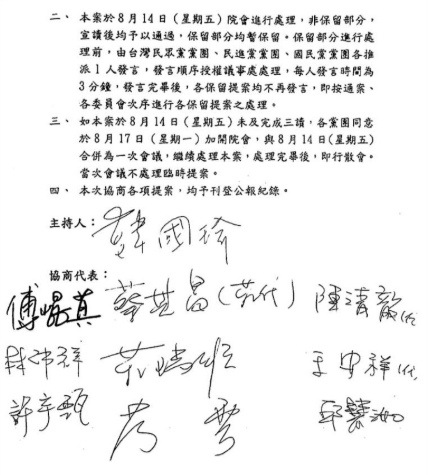 二、本案於8月14日(星期五)院會進行處理,非保留部分,
宣讀後均予以通過,保留部分均暫保留。保留部分進行處
理前,由台灣民眾黨黨團、民進黨黨團、國民黨黨團各推
派1人發言,發言順序授權議事處處理,每人發言時間為
3分鐘,發言完畢後,各保留提案均不再發言,即按通案、
各委員會次序進行各保留提案之處理。
三、如本案於8月14日(星期五)未及完成三讀,各黨團同意
於8月17日(星期一)加開院會,與8月14日(星期五)
合併為一次會議,繼續處理本案,處理完畢後,即行散會。
當次會議不處理臨時提案。
四、本次協商各項提案,均予刊登公報紀錄。
主持人:韓國瑜
協商代表:
傅崐萁 蔡其昌(代) 陳清龍代
林沛祥
許宇甄